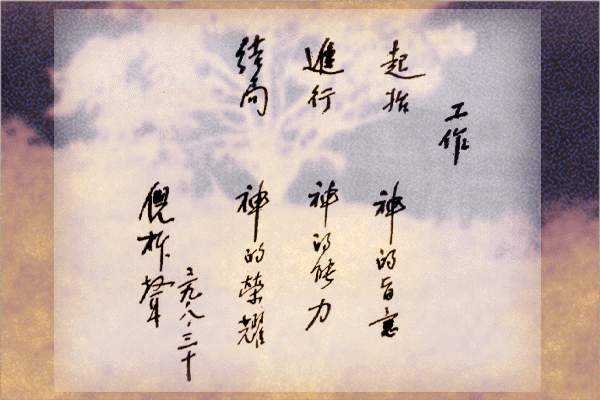 工作
起始　神的旨意
進行　神的能力
結局　神的榮耀
倪柝聲
八·三十